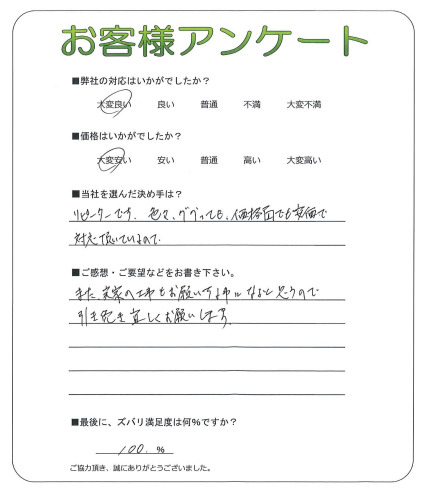 お客様アンケート
■弊社の対応はいかがでしたか?
大変良い 良い 普通 不満 大変不満
■価格はいかがでしたか?
大変安い 安い 普通 高い 大変高い
■当社を選んだ決め手は?
リピーターです。色々、ググっても、価格面でも安価で
対応頂いているので。
■ご感想・ご要望などをお書き下さい。
また、実家の工事もお願いする事になると思うので
引き続き宜しくお願いします。
■最後に、ズバリ満足度は何%ですか?
100. %
ご協力頂き、誠にありがとうございました。